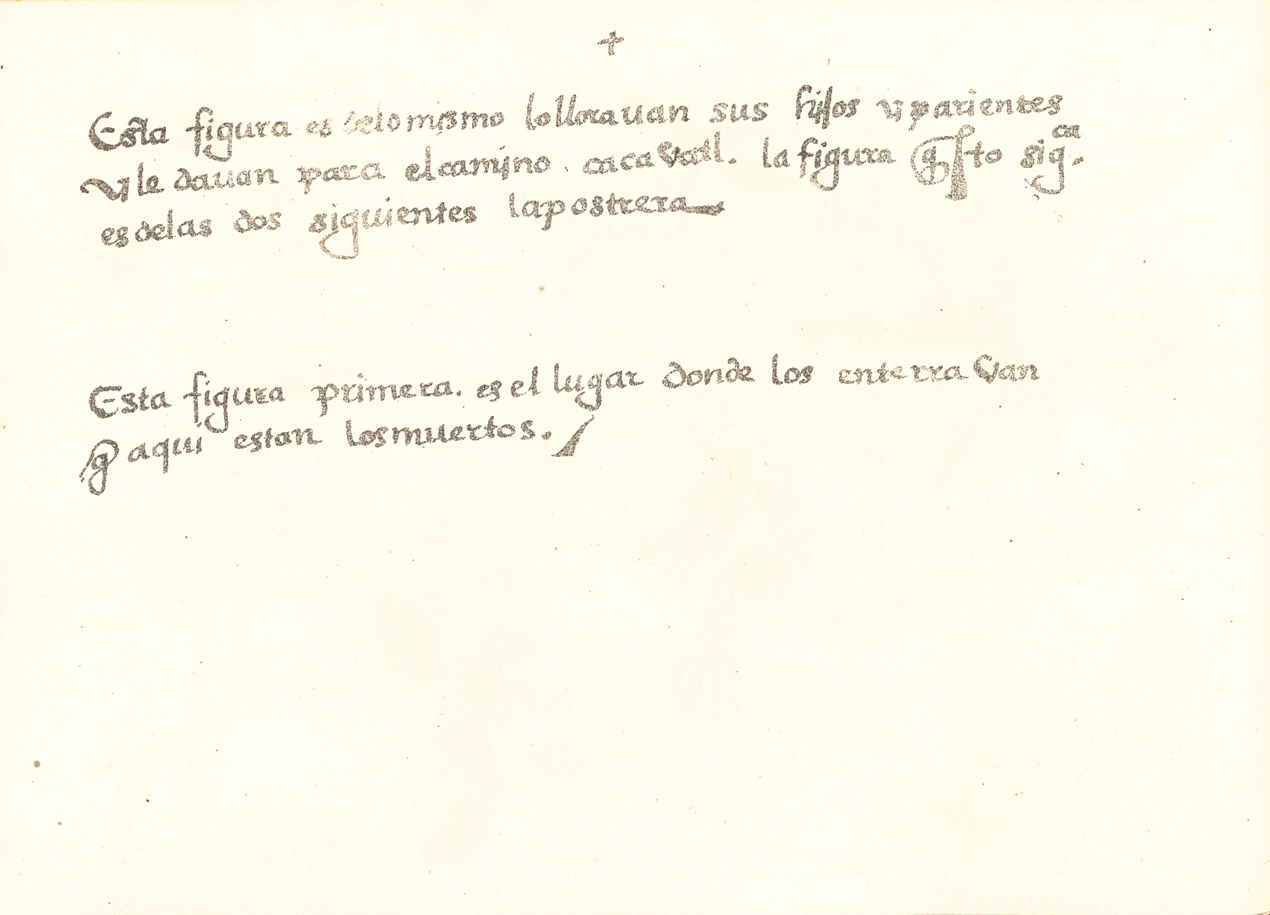 ✝
Esta figura es delo mismo lo llorauan sus hijos y parientes
y le dauan para el camino . cacavatl. la figura q̄ sto sigca.
es delas dos siguientes la postrera
Esta figura primera. es el lugar donde los enterravan
q̄ aqui estan los muertos.